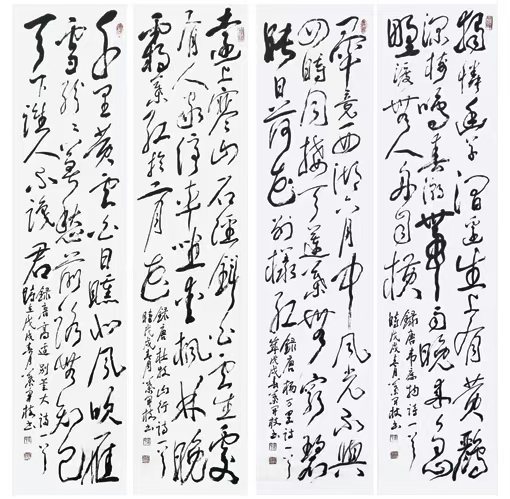 獨憐幽草澗邊生上有黃鸝
深樹鳴春潮帶雨晚來急
野渡無人舟自橫
錄唐韋應物詩一首
時戊戌春月 書
畢竟西湖六月中風光不與
四時同接天蓮葉無窮碧
映日荷花別樣紅
錄唐楊万里詩一首
戊戌春月 書
遠上寒山石徑斜白雲生處
有人家停車坐愛楓林晚
霜葉紅於二月花
錄唐杜牧山行詩一首
時戊戌春月 書
千里黃雲白日曛北風吹雁
雪紛々莫愁前路無知己
天下誰人不識君
錄唐高適別董大詩一首
時在戊戌春月 書